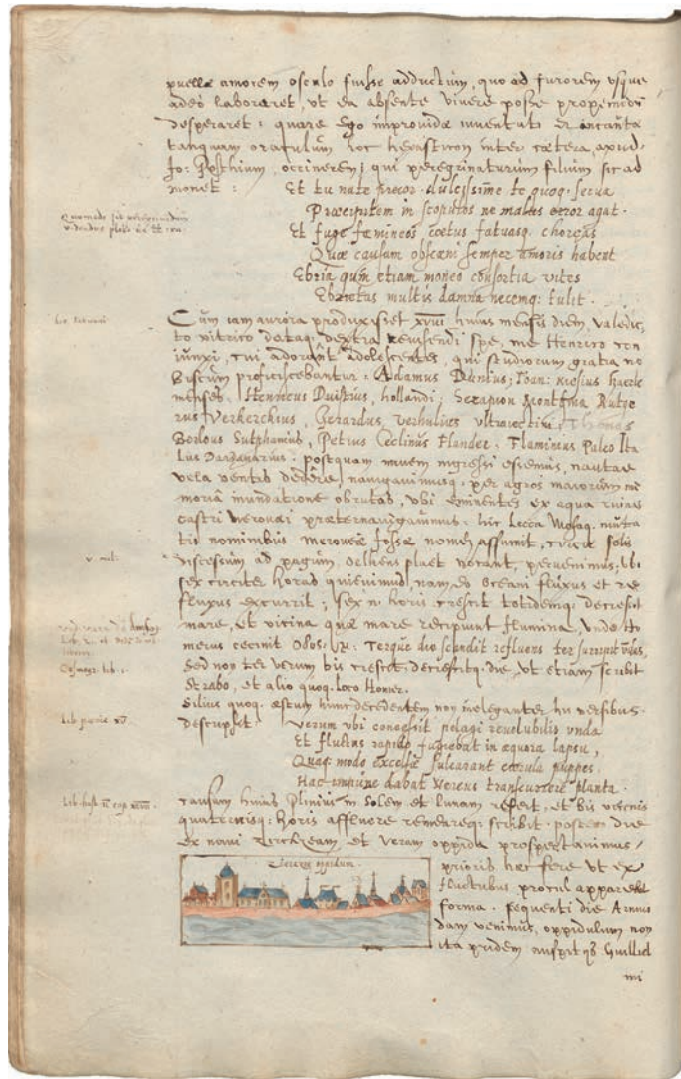 puellæ amorem osculo fuisse adductum, quo ad furorem usque
adeò laboraret, ut ea absente vivere posse propemodū
desperaret: quare ego improvidæ iuventuti et incautæ
tanquam oraculum hoc hexasticon inter cætera, apud
Jo: Posthium, occinerem; qui peregrinaturum filium sic ad
monet: Et tu nate precor dulcissime te quoq. serva
Præcipitem in scopulos ne malus error agat.
Et fuge fæmineos cœtus fatuasq. choreas
Quæ causam obscæni semper amoris habent
Ebria quin etiam moneo consortia vites
Ebrietas multis damna necemq: tulit.
Cum iam aurora produxisset xviii huius mensis diem, valedic
to vitrico dataq; dextra revisendi spe, me Henrico
iunxi, cui adolescentes, qui studiorum gratia no
biscum proficiscebantur: Adamus Joan:
menses, Henricus Hollandi; Serapion Rutge
rus Verkerckius, Gerardus Verhulius ultraiectini Thomas
Borlous Sutphanius, Petrus Ceclinus Flander. Flaminius Paleo Ita
lus: postquam navem ingressi essemus, nautae
vela ventis dedêre, navigavimusq; per agros maiorum me
moriâ inundatione obrutas, ubi eminentes ex aqua ruinas
castri Merouæi præternavigavimus: hic Lecca Mosaq. muta
tis nominibus Merovææ fossæ nomen assumit, circa solis
discessum ad pagum, Selhens plaet vocant, pervenimus; ubi
sex circiter horas quievimus, nam eo Oceani fluxus et re
fluxus excurrit; sex n. horis crescit totidemq; decrescit
mare, et vicina quæ mare recipiunt flumina, unde Ho
merus cecinit Odos. Terque die scandit refluens ter
sed non ter verum bis crescit decrescitq. die, ut etiam scribit
Strabo, et alio quoq. loco Homer.
Silius quoq. æstum hunc decedentem non ineleganter his versibus
descripsit: Verum ubi concessit pelagi revolubilis unda
Et fluctus rapido fugiebat in æquora lapsu,
Quaq: modo excelsæ sulcarant cærula puppes
Hac impune dabat Nereus transcurrere planta.
causam huius Plinius in Solem et Lunam refert, et bis vicenis
quaternisq; horis affluere remeareq; scribit. postero die
ex navi Zirckzeam et Veram oppida prospectavimus,
prioris hæc fere ut ex
fluctibus procul apparebat
forma. sequenti die Armui
dam venimus, oppidulum non
ita pridem auspitijs Guilliel
mi
Lib. pun: xv
Cosmogr. lib. 1.
Zierczee oppidum